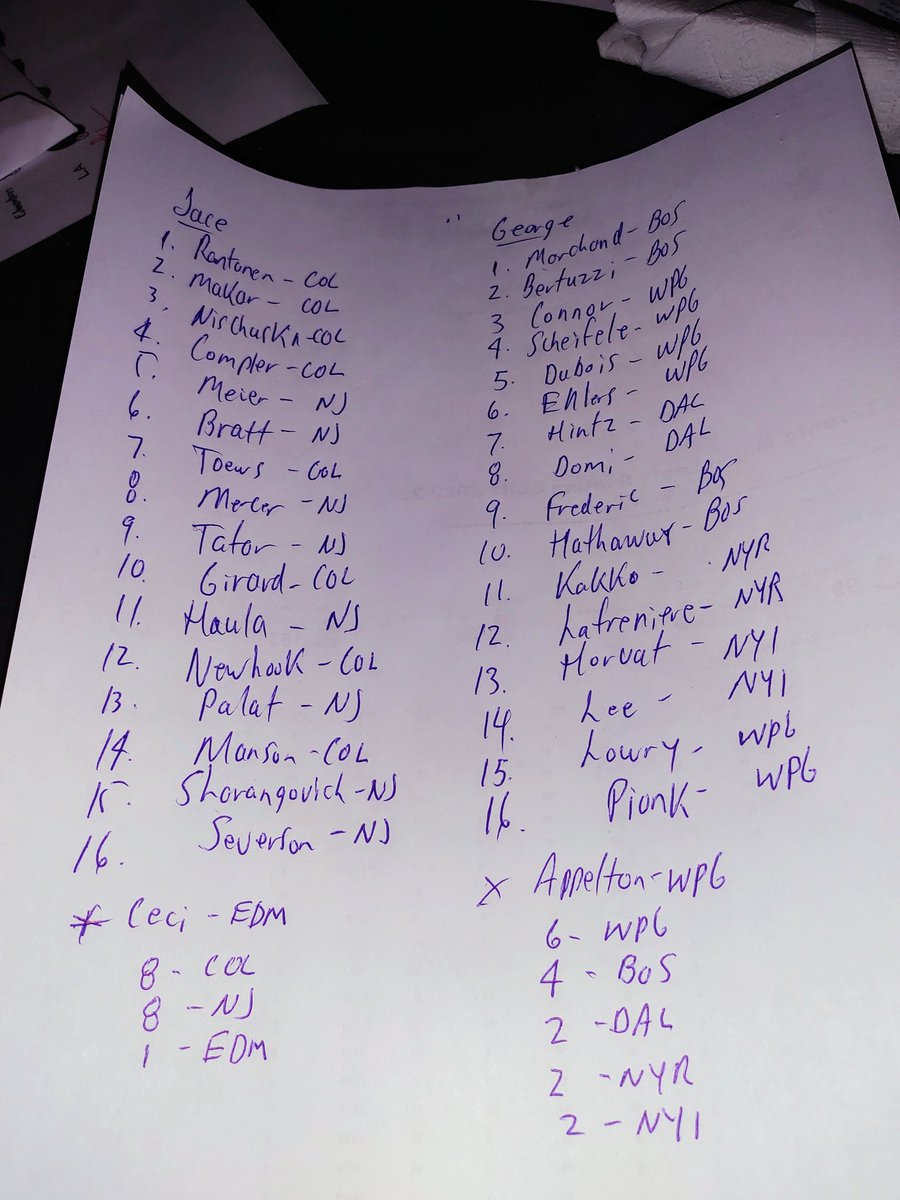 Jace
1. Rantanen - COL
2. Makar - COL
3. Nischuskn - COL
4. Compher - COL
5. Meier - NJ
6. Bratt - NJ
7. Toews - COL
8. Mercer - NJ
9. Tator - NJ
10. Girard - COL
11. Haula - NJ
12. Newhook - COL
13. Palat - NJ
14. Manson - COL
15. Sharangovich - NJ
16. Severson - NJ
* Ceci - EDM
8 - COL
8 - NJ
1 - EDM
George
1. Marchand - BOS
2. Bertuzzi - BOS
3 Connor - WPG
4. Scheifele - WPG
5. Dubois - WPG
6. Ehlers - WPG
7. Hintz - DAL
8. Domi - DAL
9. Frederic - BOS
10. Hathaway - BOS
11. Kakko - NYR
12. Lafreniere - NYR
13. Horvat - NYI
14. Lee - NYI
15. Lowry - WPG
16. Pionk - WPG
X Appelton - WPG
6 - WPG
4 - BOS
2 - DAL
2 - NYR
2 - NYI
LA